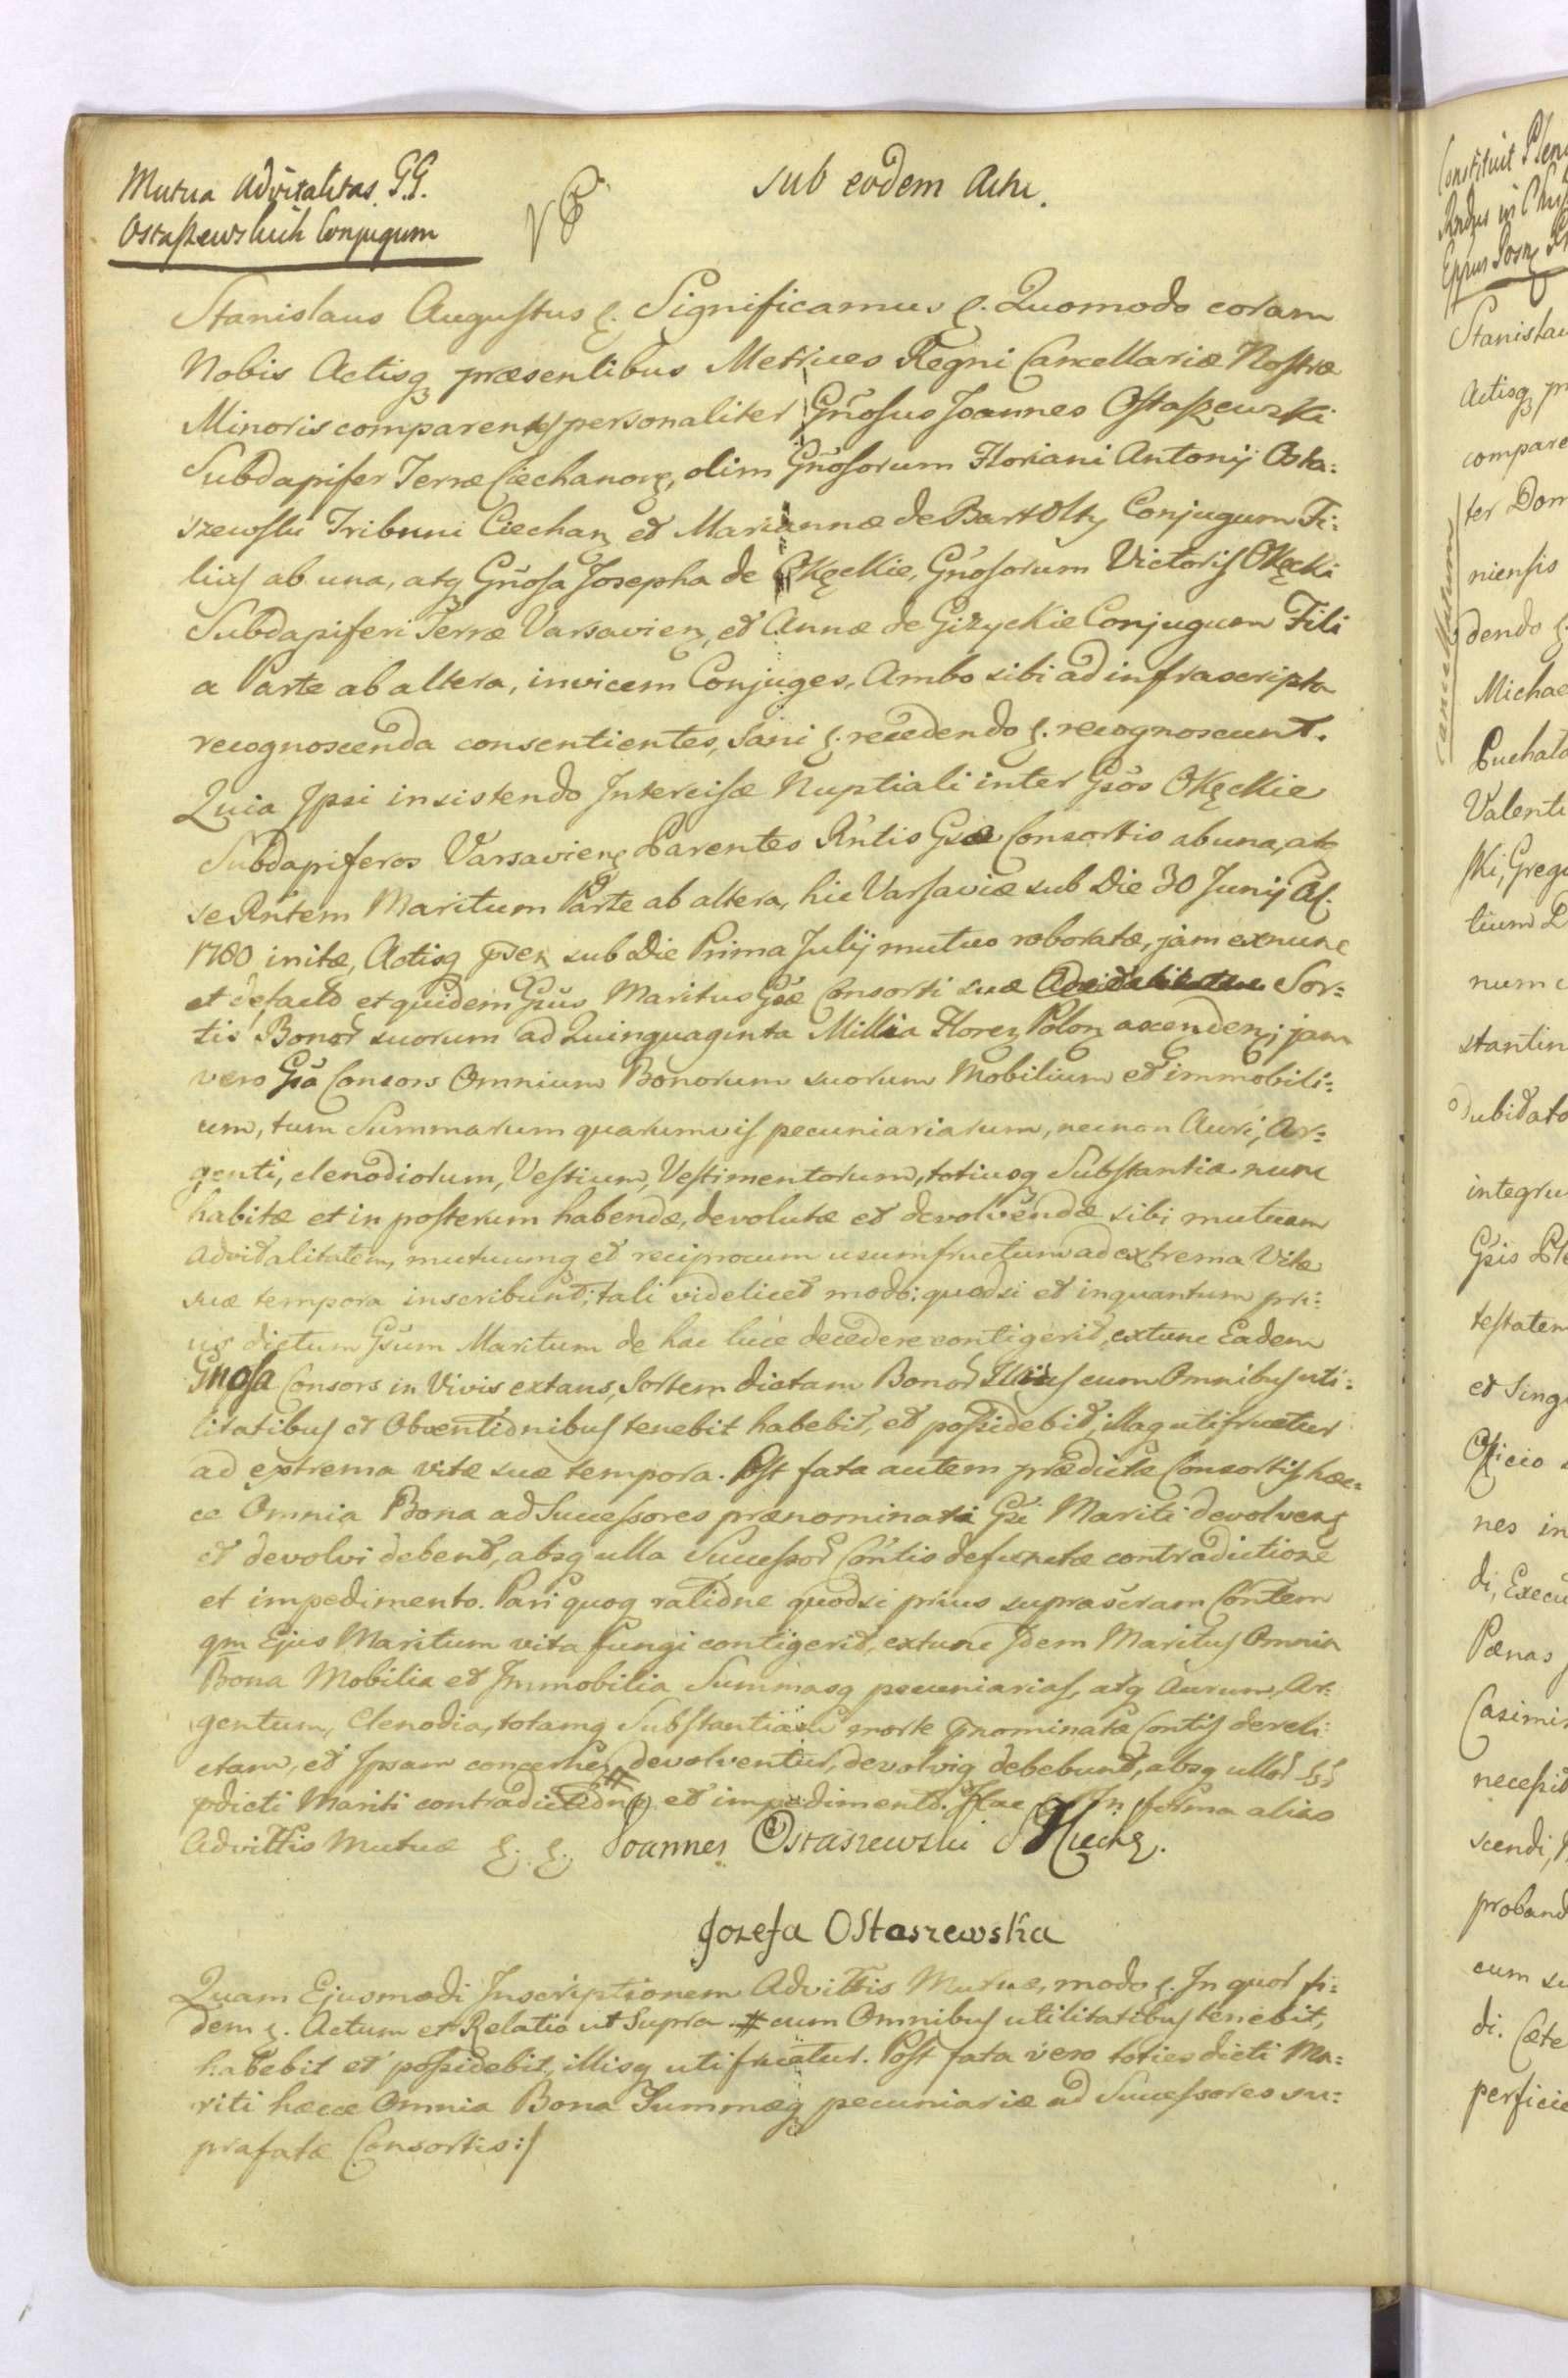 Mutua Advitalitas G.G.
Ostaszewskich Conjugum
sub eodem Actu.
Stanislaus Augustus &. Significamus &. Quomodo coram
Nobis Actisq præsentibus Metrices Regni Cancellariæ Nostræ
Minoris comparentes personaliter Gnosus Joannes Ostaszewski
Subdapifer Terræ Ciechanow, olim Gnosorum Floriani Antonij Osta:
szewski Tribuni Ciechan et Mariannæ de Bartolty Conjugum Fi:
lius ab una, atq Gnosa Josepha de Okęckie, Gnosorum Victoris Okęcki
Subdapiferi Terræ Varsavien, et Annæ de Giżyckie Conjugum Fili
a Parte ab altera, invicem Conjuges, Ambo sibi ad infrascripta
recognoscenda consentientes, Sani &. recedendo &. recognoscunt.
Quia Ipsi insistendo Intercisæ Nuptiali inter Gsos Okęckie
Subdapiferos Varsavien Parentes Rntis Gsæ Consortis ab una, atq
se Rntem Maritum Parte ab altera, hic Varsaviæ sub Die 30 Junij A
1780 initæ, Actisq psen sub Die Prima Julij mutuo roboratæ, jam exnunc
et defacto et quidem Gsus Maritus Gsæ Consorti suæ Sor:
tis Bonor suorum ad Quinquaginta Millia Floren Polon ascenden, jam
vero Gsa Consors Omnium Bonorum suorum Mobilium et immobili:
um, tum Summarum quarumvis pecuniariarum, necnon Auri, Ar:
genti, clenodiorum, Vestium, Vestimentorum, totiusq Substantiæ nunc
habitæ et in posterum habendæ, devolutæ et devolvendæ sibi mutuam
advitalitatem, mutuumq et reciprocum usumfructum ad extrema Vitæ
suæ tempora inscribunt; tali videlicet modo: quodsi et inquantum pri:
us dictum Gsum Maritum de hac luce decedere contigerit, extunc Eadem
Gnosa Consors in Vivis extans, Sortem dictam Bonor Illius cum Omnibus uti:
litatibus et Obventionibus tenebit habebit, et possidebit, illaq utifruetur
ad extrema vitæ suæ tempora. Post fata autem prædictæ Consortis hæc:
ce Omnia Bona ad Successores prænominati Gsi Mariti devolven
et devolvi debent, absq ulla Successor Contis defunctæ contradictione
et impedimento. Pari quoq ratione quodsi prius suprascram Contem
qm Ejus Maritum vita fungi contigerit, extunc Idem Maritus Omnia
Bona Mobilia et Immobilia Summasq pecuniarias, atq Aurum, Ar:
gentum, Clenodia, totamq Substantiam morte pnominatæ Contis dereli:
ctam, et Ipsam concernen # devolventur, devolviq debebunt, absq ullor
pdicti Mariti contradictione et impedimento. Hac In forma alias
Advittis Mutuæ &. &. Joannes Ostaszewski
Jozefa Ostaszewska
Quam Ejusmodi Inscriptionem Advittis Mutuæ, modo &. In quor fi:
dem &. Actum et Relatio ut Supra. # cum Omnibus utilitatibus tenebit,
habebit et possidebit, illisq utifruetur. Post fata vero toties dicti Ma:
riti hæcce Omnia Bona Summæq pecuniariæ ad Successores su:
prafatæ Consortis:/